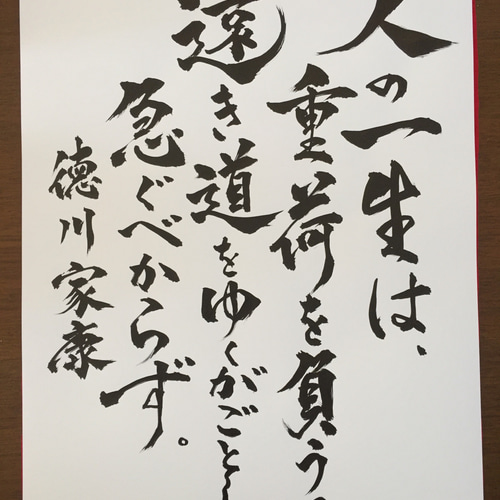 人の一生は、
重荷を負う
遠き道をゆくがごとし
急ぐべからず。
徳川家康